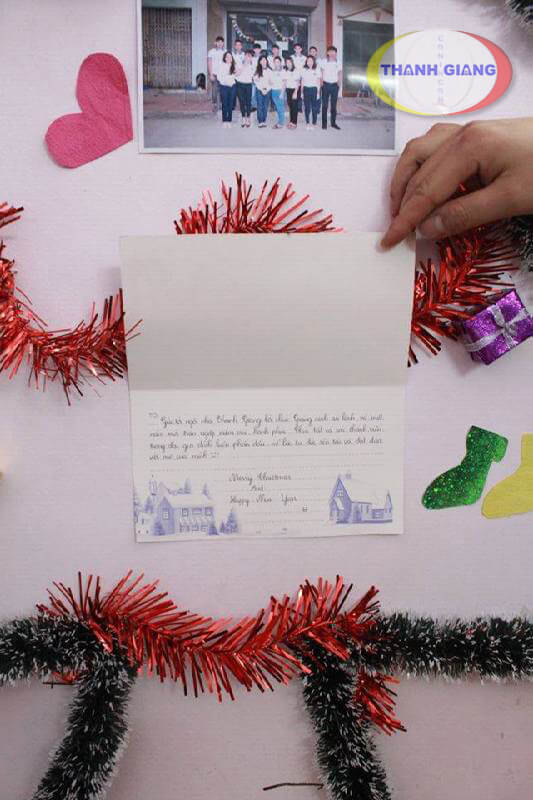 THANH GIANG
CONINCON
Gửi tới ngôi nhà Thanh Giang lời chúc Giáng sinh an lành, và một
năm mới tràn ngập niềm vui, hạnh phúc. Chúc tất cả các thành viên
trong đại gia đình luôn phấn đấu, nỗ lực
với ước mơ của mình
Merry Christmas
And
Happy New Year